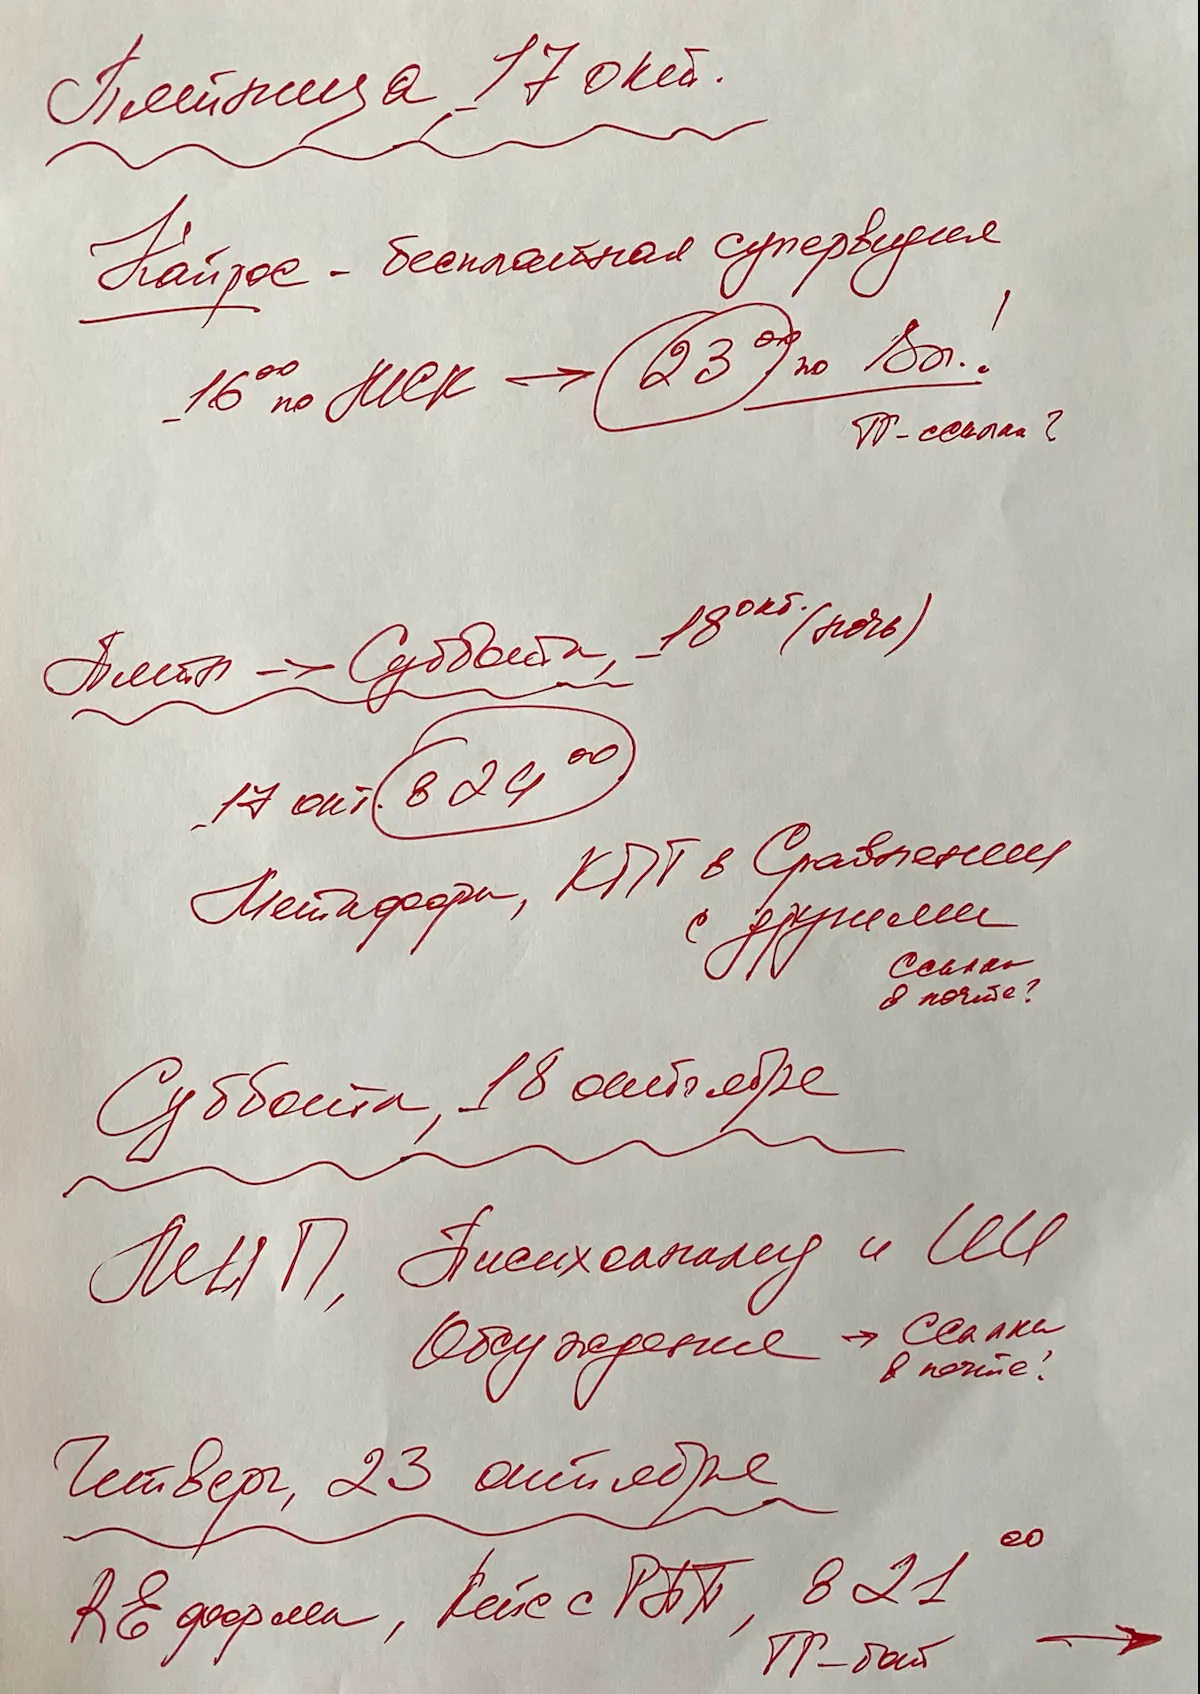 Пятница, 17 окт.
Кайрос - бесплатная супервизия
16⁰⁰ по МСК → 23⁰⁰ по Вл.!
ТГ-ссылка?
Пятн → Суббота, 18 окт. (ночь)
17 окт. в 24⁰⁰
Метафоры, КПТ в Сравнении
с другими
Ссылка
в почте?
Суббота, 18 октября
МИП, Психоанализ и ИИ
Обсуждения → Ссылка
в почте!
Четверг, 23 октября
REформа, Кейс с РПП, в 21⁰⁰
ТГ-бот →